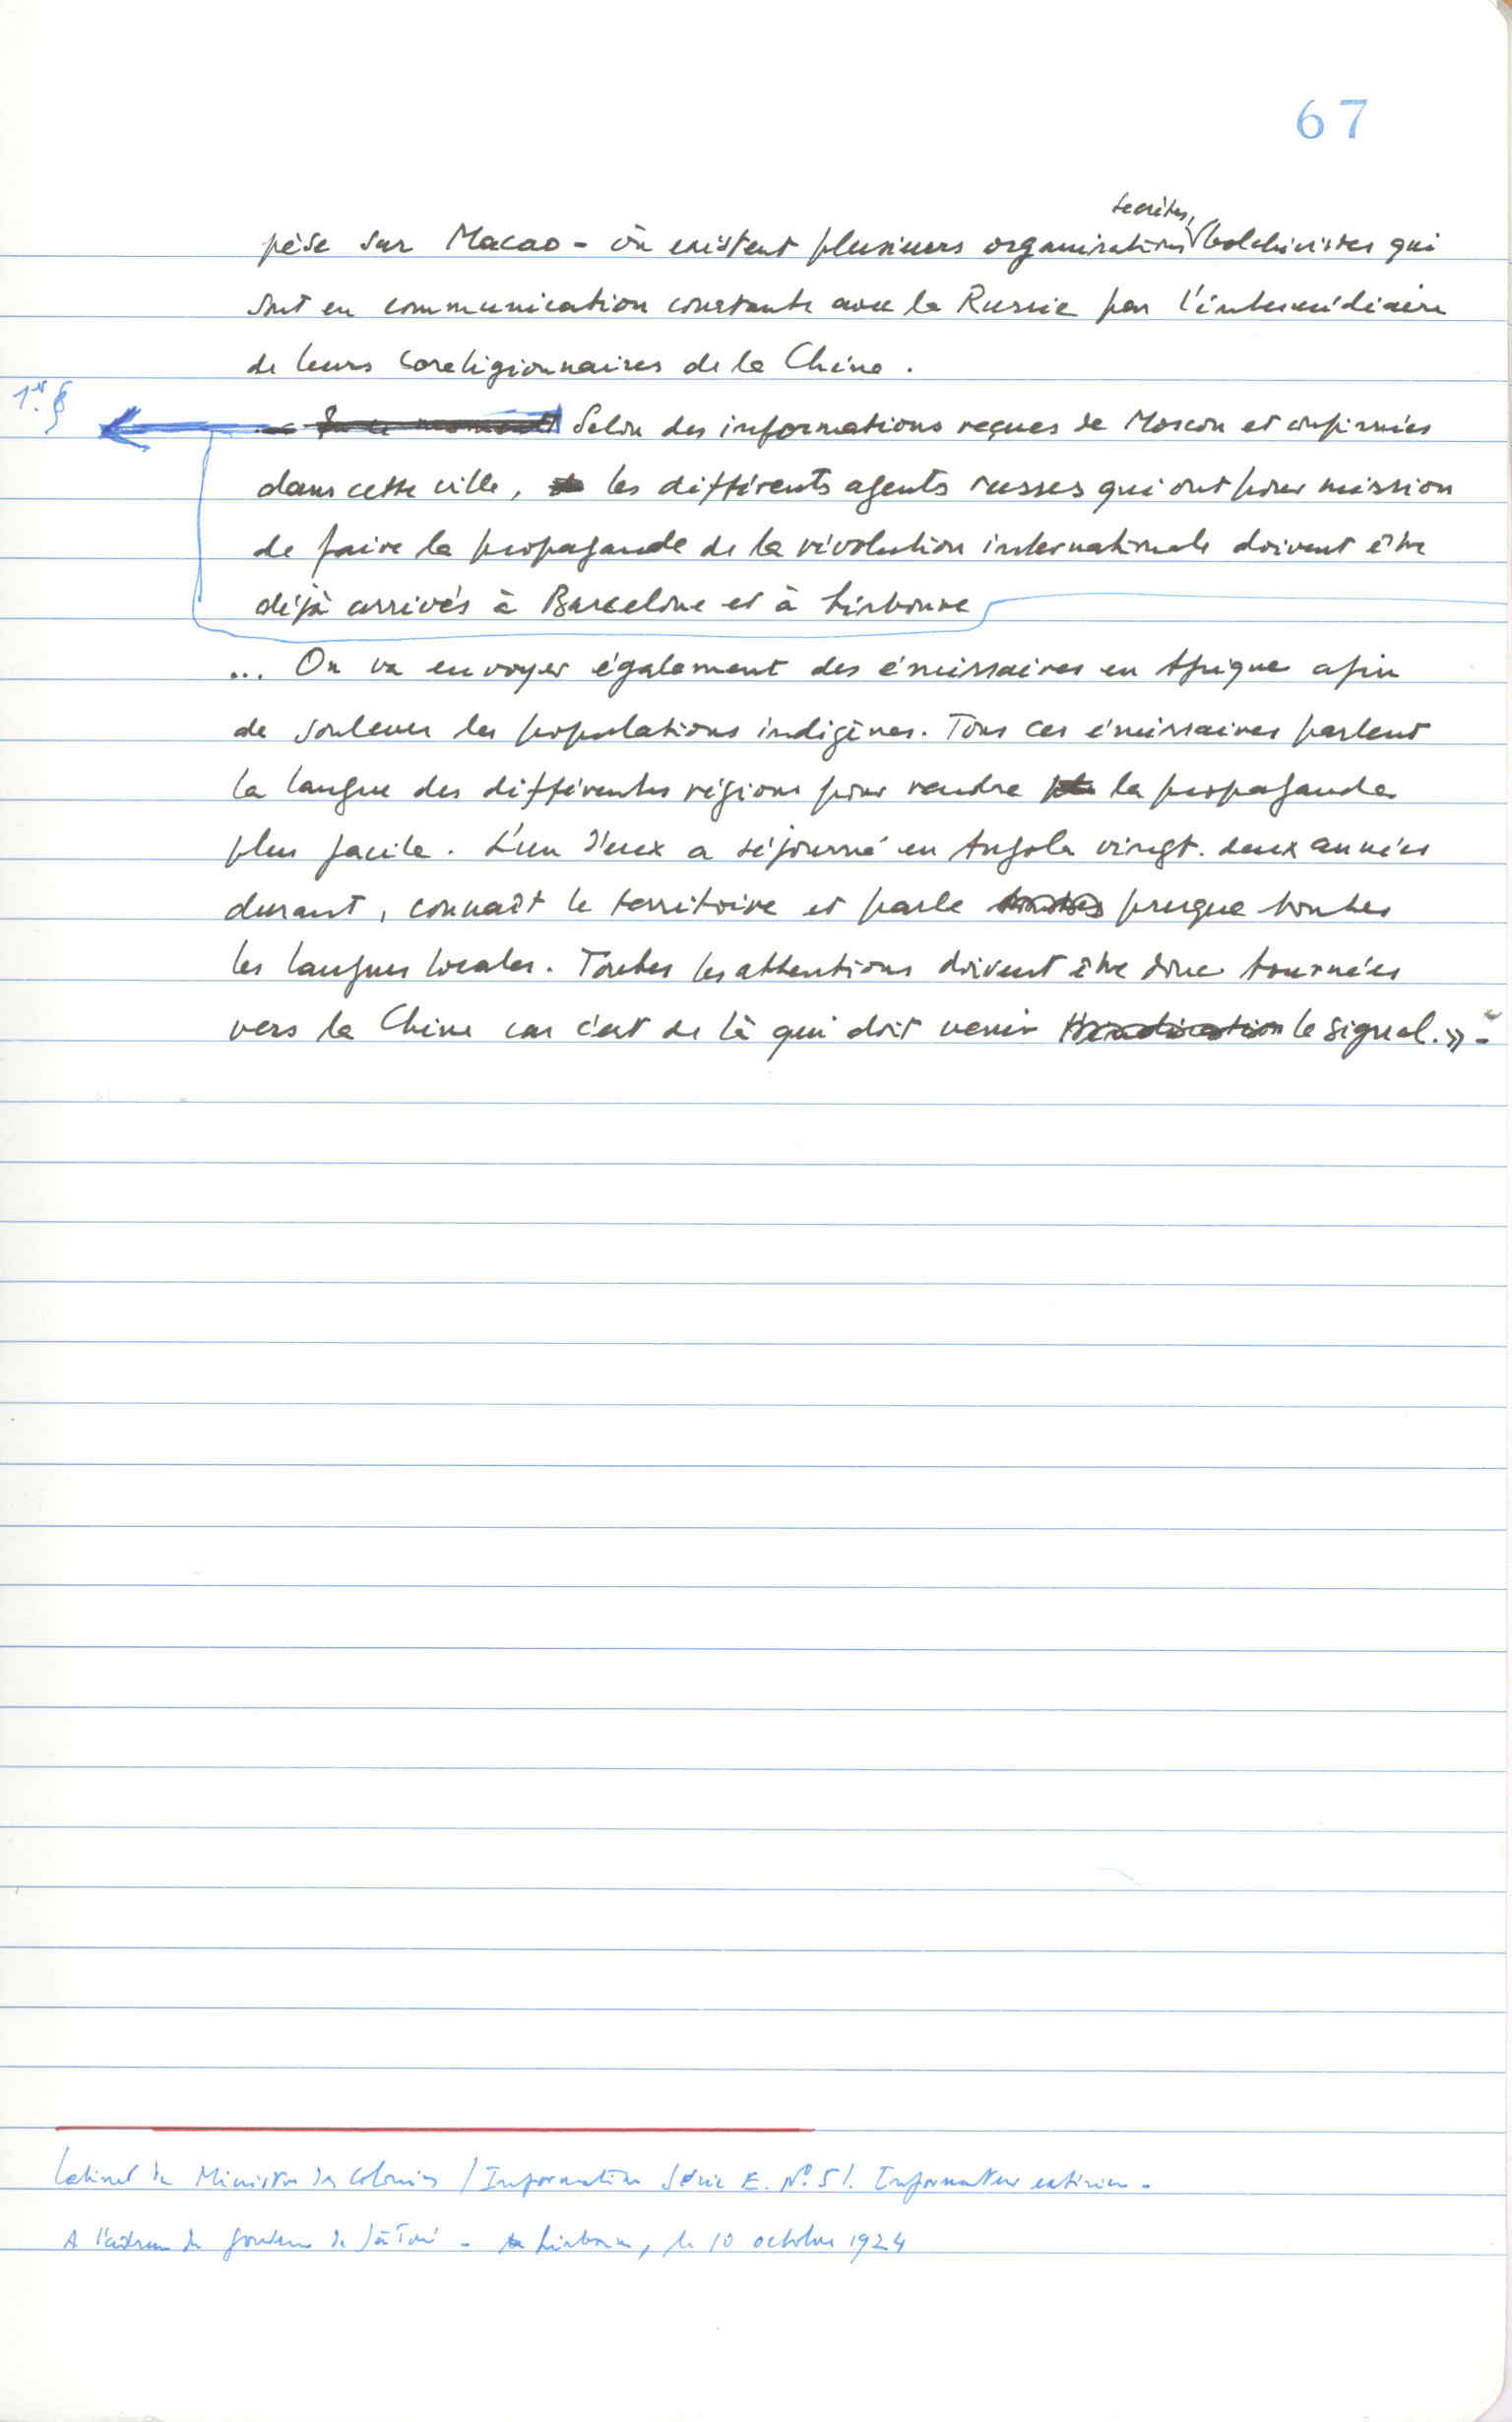 67
secrètes,
pèse sur Macao - où existent plusieurs organisations bolchévistes qui
sont en communication constante avec la Russie par l'intermédiaire
de leurs coreligionnaires de la Chine.
1er §
En ce moment Selon des informations reçues de Moscou et confirmées
dans cette ville, les différents agents russes qui ont pour mission
de faire la propagande de la révolution internationale doivent être
déjà arrivés à Barcelone et à Lisbonne
... On va envoyer également des émissaires en Afrique afin
de soulever les populations indigènes. Tous ces émissaires parlent
la langue des différentes régions pour rendre la propagande
plus facile. L'un d'eux a séjourné en Angola vingt-deux années
durant, connaît le territoire et parle toutes presque toutes
les langues locales. Toutes les attentions doivent être donc tournées
vers la Chine car c'est de là qui doit venir l'indication le signal.» -
Cabinet du Ministre des Colonies / Information Série E. Nº 51. Informateur extérieur -
A l'adresse du Gouverneur de S. Tomé - Lisbonne, le 10 octobre 1924